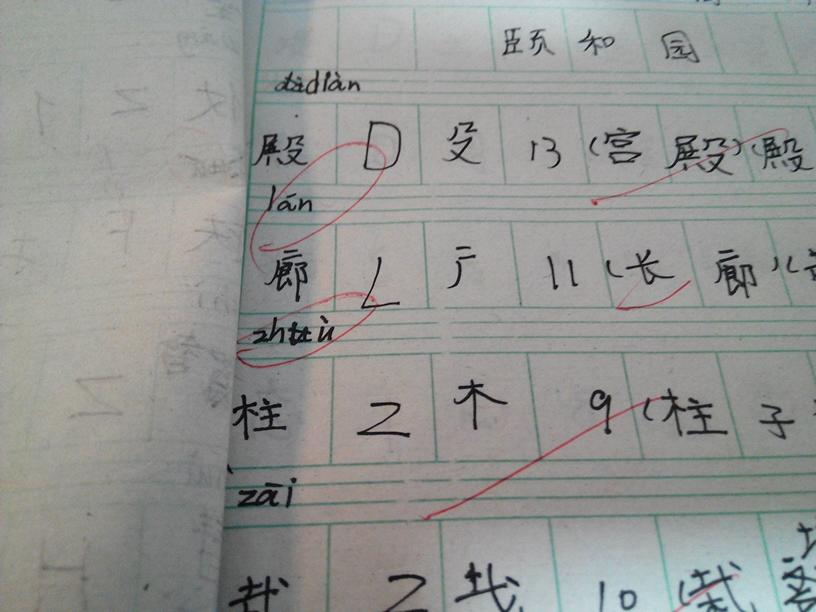 颐和园
diàn
殿 D 殳 13 (宫殿) (殿
lán
廊 L 广 11 (长廊) (
zhù
柱 Z 木 9 (柱子
zāi
栽 Z 10 (栽